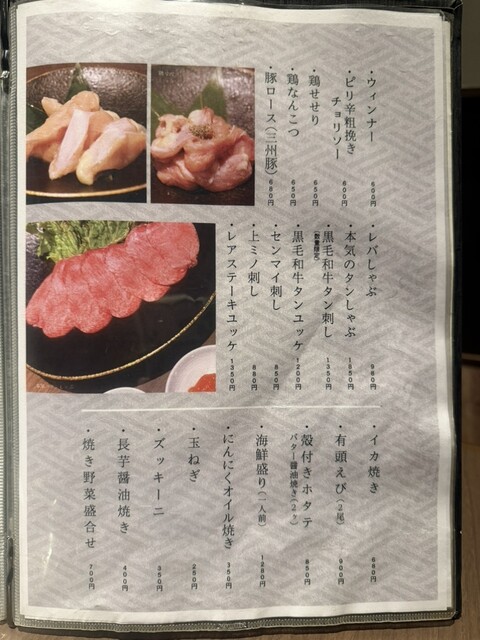 ・ウィンナー 600円
・ピリ辛粗挽き
チョリソー 600円
・鶏せせり 650円
・鶏なんこつ 650円
・豚ロース（三州豚） 680円
・レバしゃぶ 980円
・本気のタンしゃぶ 1850円
・黒毛和牛タン刺し 1350円
（数量限定）
・黒毛和牛タンユッケ 1200円
・センマイ刺し 850円
・上ミノ刺し 880円
・レアステーキユッケ 1350円
・イカ焼き 680円
・有頭えび（2尾） 900円
・殻付きホタテ
バター醤油焼き（2ヶ） 850円
・海鮮盛り（一人前） 1280円
・にんにくオイル焼き 350円
・玉ねぎ 250円
・ズッキーニ 350円
・長芋醤油焼き 400円
・焼き野菜盛合せ 700円